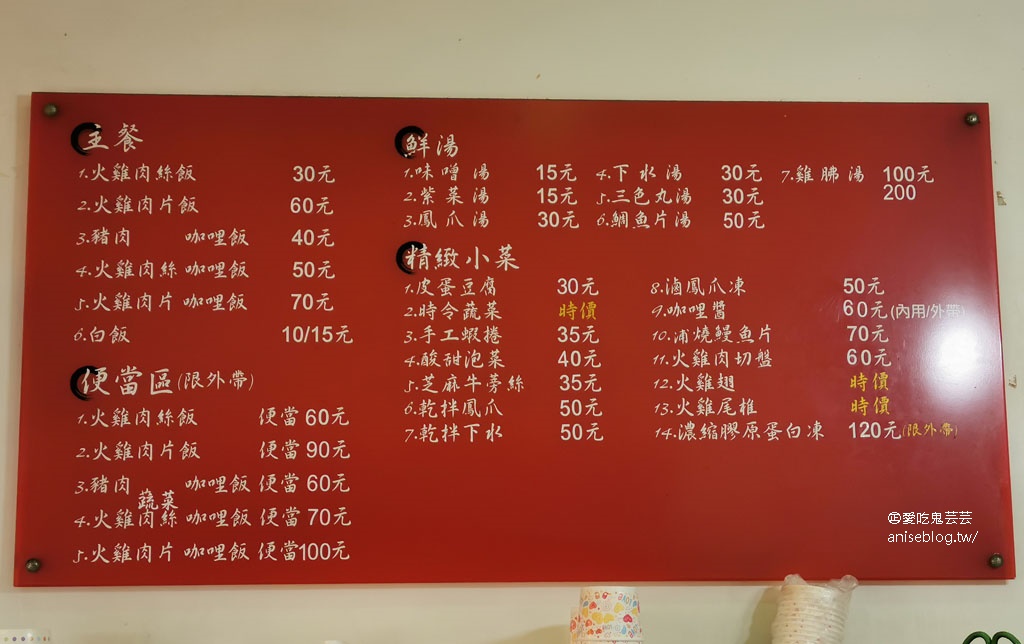 主餐
1.火雞肉絲飯 30元
2.火雞肉片飯 60元
3.豬肉 咖哩飯 40元
4.火雞肉絲 咖哩飯 50元
5.火雞肉片 咖哩飯 70元
6.白飯 10/15元
便當區(限外帶)
1.火雞肉絲飯 便當 60元
2.火雞肉片飯 便當 90元
3.豬肉 咖哩飯 便當 60元
蔬菜
4.火雞肉絲 咖哩飯 便當 70元
5.火雞肉片 咖哩飯 便當100元
鮮湯
1.味噌湯 15元 4.下水湯 30元 7.雞腓湯 100元
2.紫菜湯 15元 5.三色丸湯 30元 200
3.鳳爪湯 30元 6.鯛魚片湯 50元
精緻小菜
1.皮蛋豆腐 30元
2.時令蔬菜 時價
3.手工蝦捲 35元
4.酸甜泡菜 40元
5.芝麻牛蒡絲 35元
6.乾拌鳳爪 50元
7.乾拌下水 50元
8.滷鳳爪凍 50元
9.咖哩醬 60元(內用/外帶)
10.浦燒鰻魚片 70元
11.火雞肉切盤 60元
12.火雞翅 時價
13.火雞尾椎 時價
14.濃縮膠原蛋白凍 120元(限外帶)
愛吃鬼芸芸
aniseblog.tw/